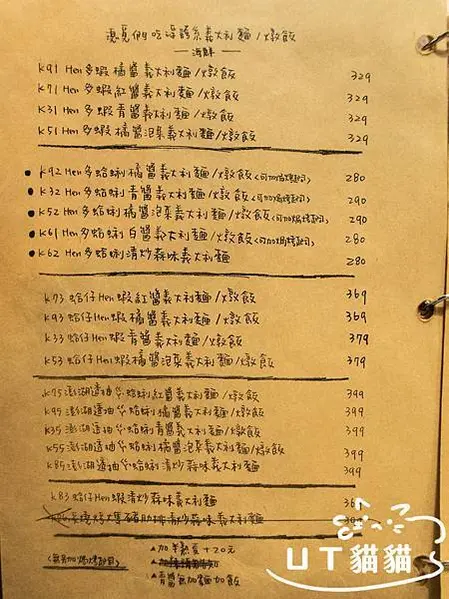 —海鮮—
K91 Hen多蝦橘醬義大利麵/燉飯 329
K71 Hen多蝦紅醬義大利麵/燉飯 329
K31 Hen多蝦青醬義大利麵/燉飯 329
K51 Hen多蝦橘醬泡菜義大利麵/燉飯 329
●K92 Hen多蛤蜊橘醬義大利麵/燉飯 280
●K32 Hen多蛤蜊青醬義大利麵/燉飯 290
●K52 Hen多蛤蜊橘醬泡菜義大利麵/燉飯 290
●K61 Hen多蛤蜊白醬義大利麵/燉飯 280
●K62 Hen多蛤蜊清炒蒜味義大利麵 280
K73 蛤仔Hen蝦紅醬義大利麵/燉飯 369
K93 蛤仔Hen蝦橘醬義大利麵/燉飯 369
K33 蛤仔Hen蝦青醬義大利麵/燉飯 379
K53 蛤仔Hen蝦橘醬泡菜義大利麵/燉飯 379
K75 澎湖透抽&蛤蜊紅醬義大利麵/燉飯 399
K95 澎湖透抽&蛤蜊橘醬義大利麵/燉飯 399
K35 澎湖透抽&蛤蜊青醬義大利麵/燉飯 399
K55 澎湖透抽&蛤蜊橘醬泡菜義大利麵/燉飯 399
K85 澎湖透抽&蛤蜊清炒蒜味義大利麵 399
K83 蛤仔Hen蝦清炒蒜味義大利麵 369
▲加半熟蛋+20元
▲青醬無加麵加飯
UT貓貓